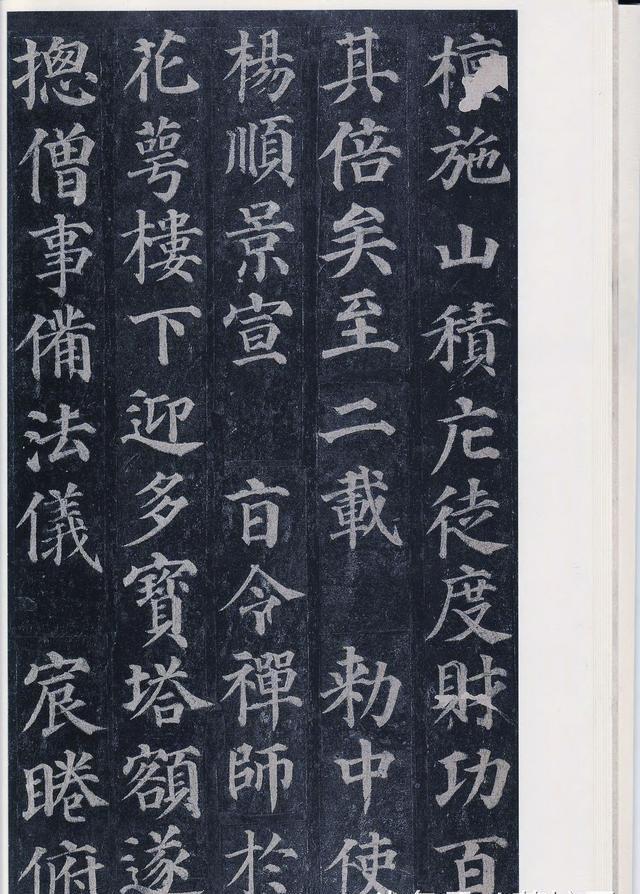 檀施山積庀徒度財功百
其倍矣至二載勅中使
楊順景宣㫖令禪師於
花萼樓下迎多寶塔額遂
揔僧事備法儀宸睠俯